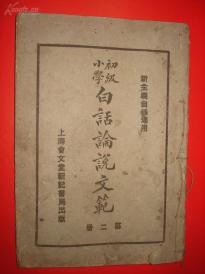 新主義自修適用
初級
小學
白話論說文範
第二冊
上海會文堂新記書局出版